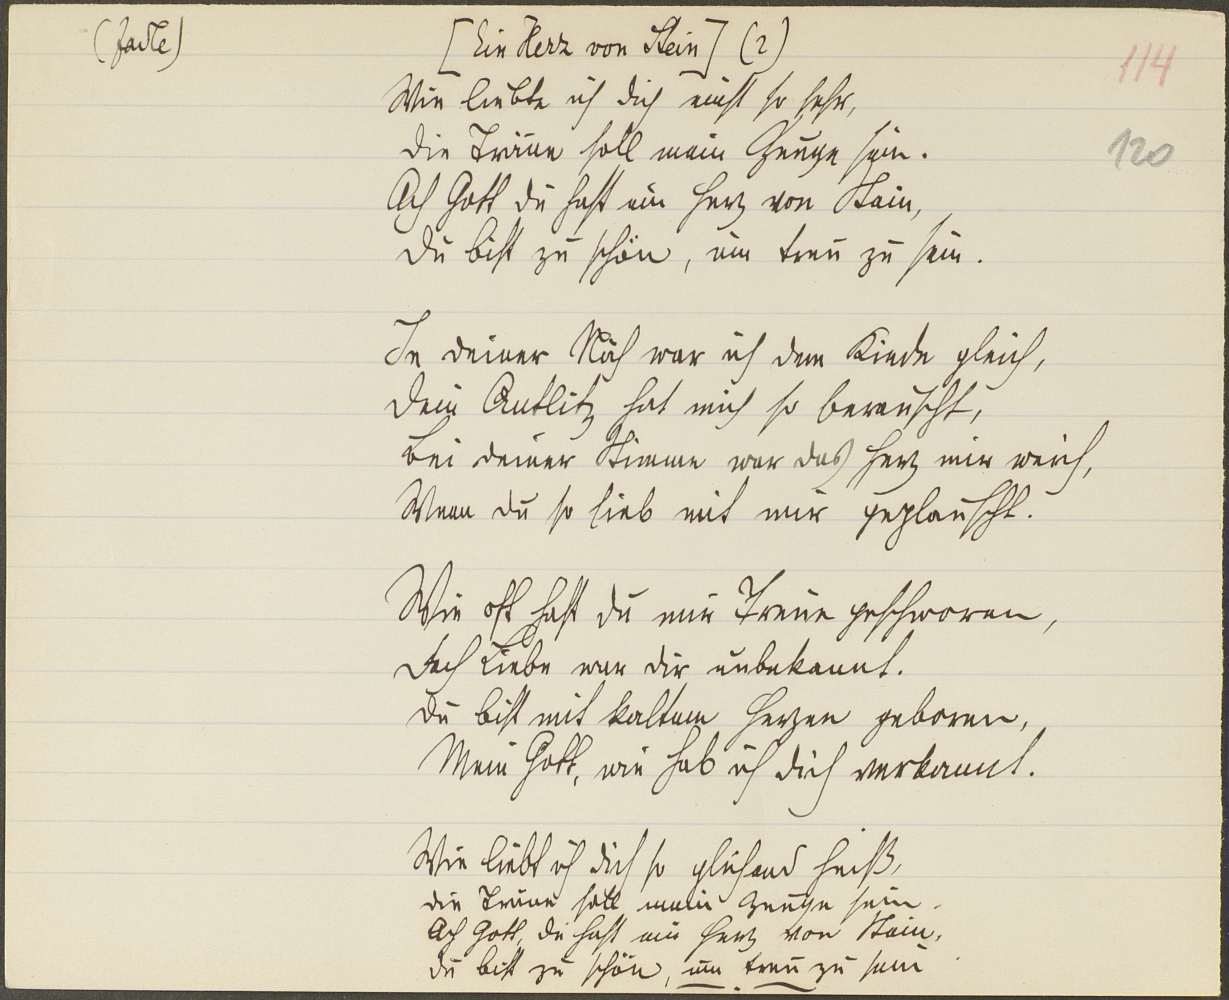 (Jackle) [Ein Herz von Stein] (2) 114
Wie liebte ich dich einst so sehr,
Die Träne soll mein Zeuge sein. 120
Ach Gott du hast ein Herz von Stein,
Du bist zu schön, um treu zu sein.
In deiner Näh war ich dem Kinde gleich,
Dein Antlitz hat mich so berauscht,
Bei deiner Stimme war das Herz mir weich,
Wenn du so lieb mit mir geplauscht.
Wie oft hast du mir Treue geschworen,
Doch Liebe war dir unbekannt.
Du bist mit kaltem Herzen geboren,
Mein Gott, wie hab ich dich verkannt.
Wie liebt ich dich so glühend heiß,
die Träne soll mein Zeuge sein.
Ach Gott, du hast ein Herz von Stein,
du bist zu schön, um treu zu sein